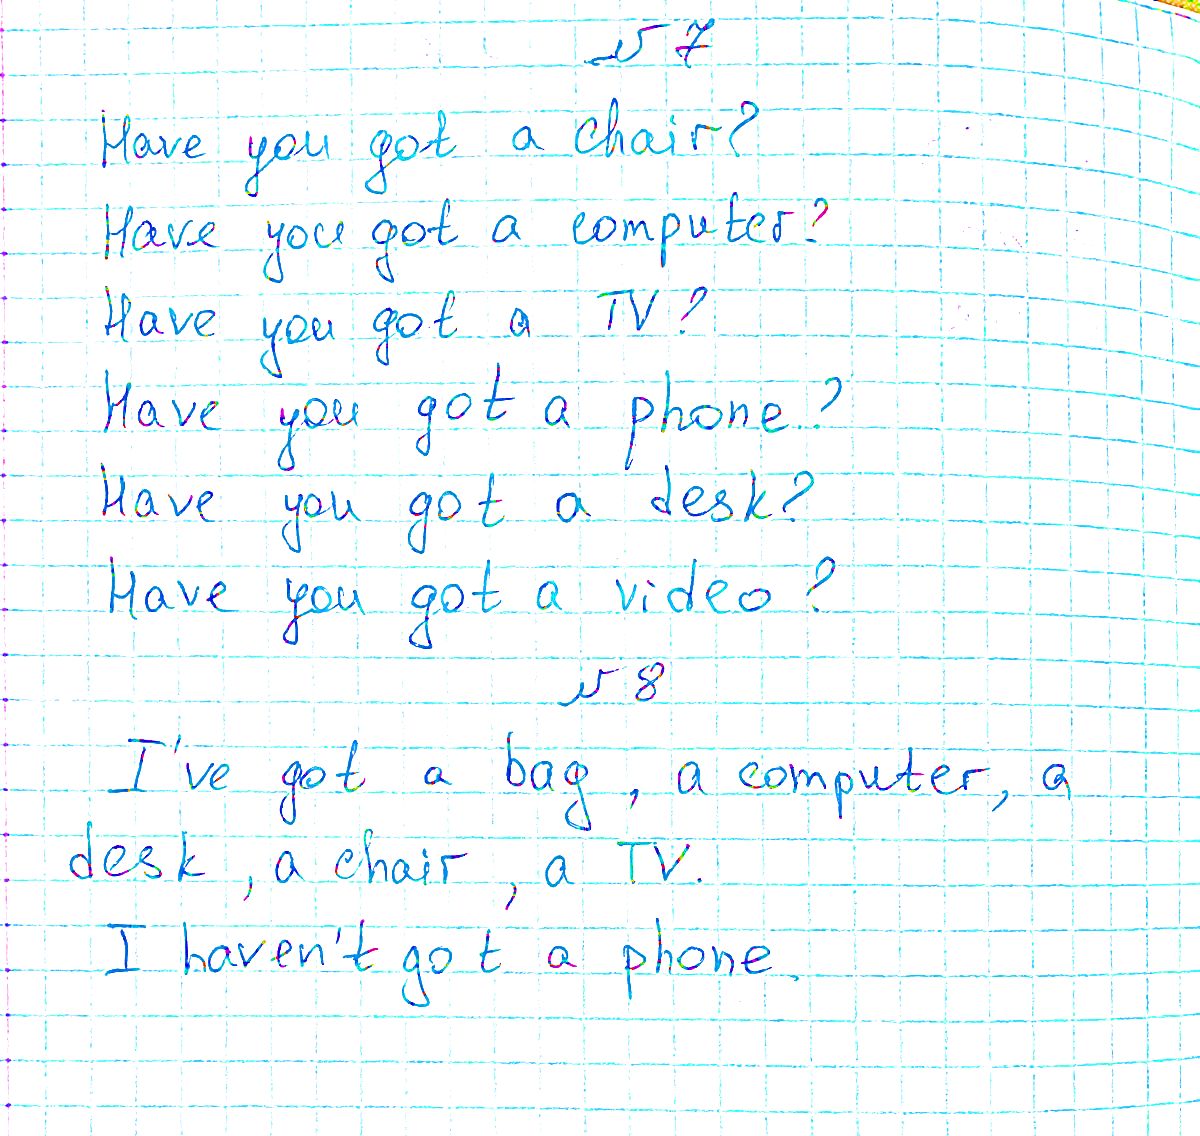 № 7
Have you got a chair?
Have you got a computer?
Have you got a TV?
Have you got a phone?
Have you got a desk?
Have you got a video?
№ 8
I've got a bag, a computer, a
desk, a chair, a TV.
I haven't got a phone.